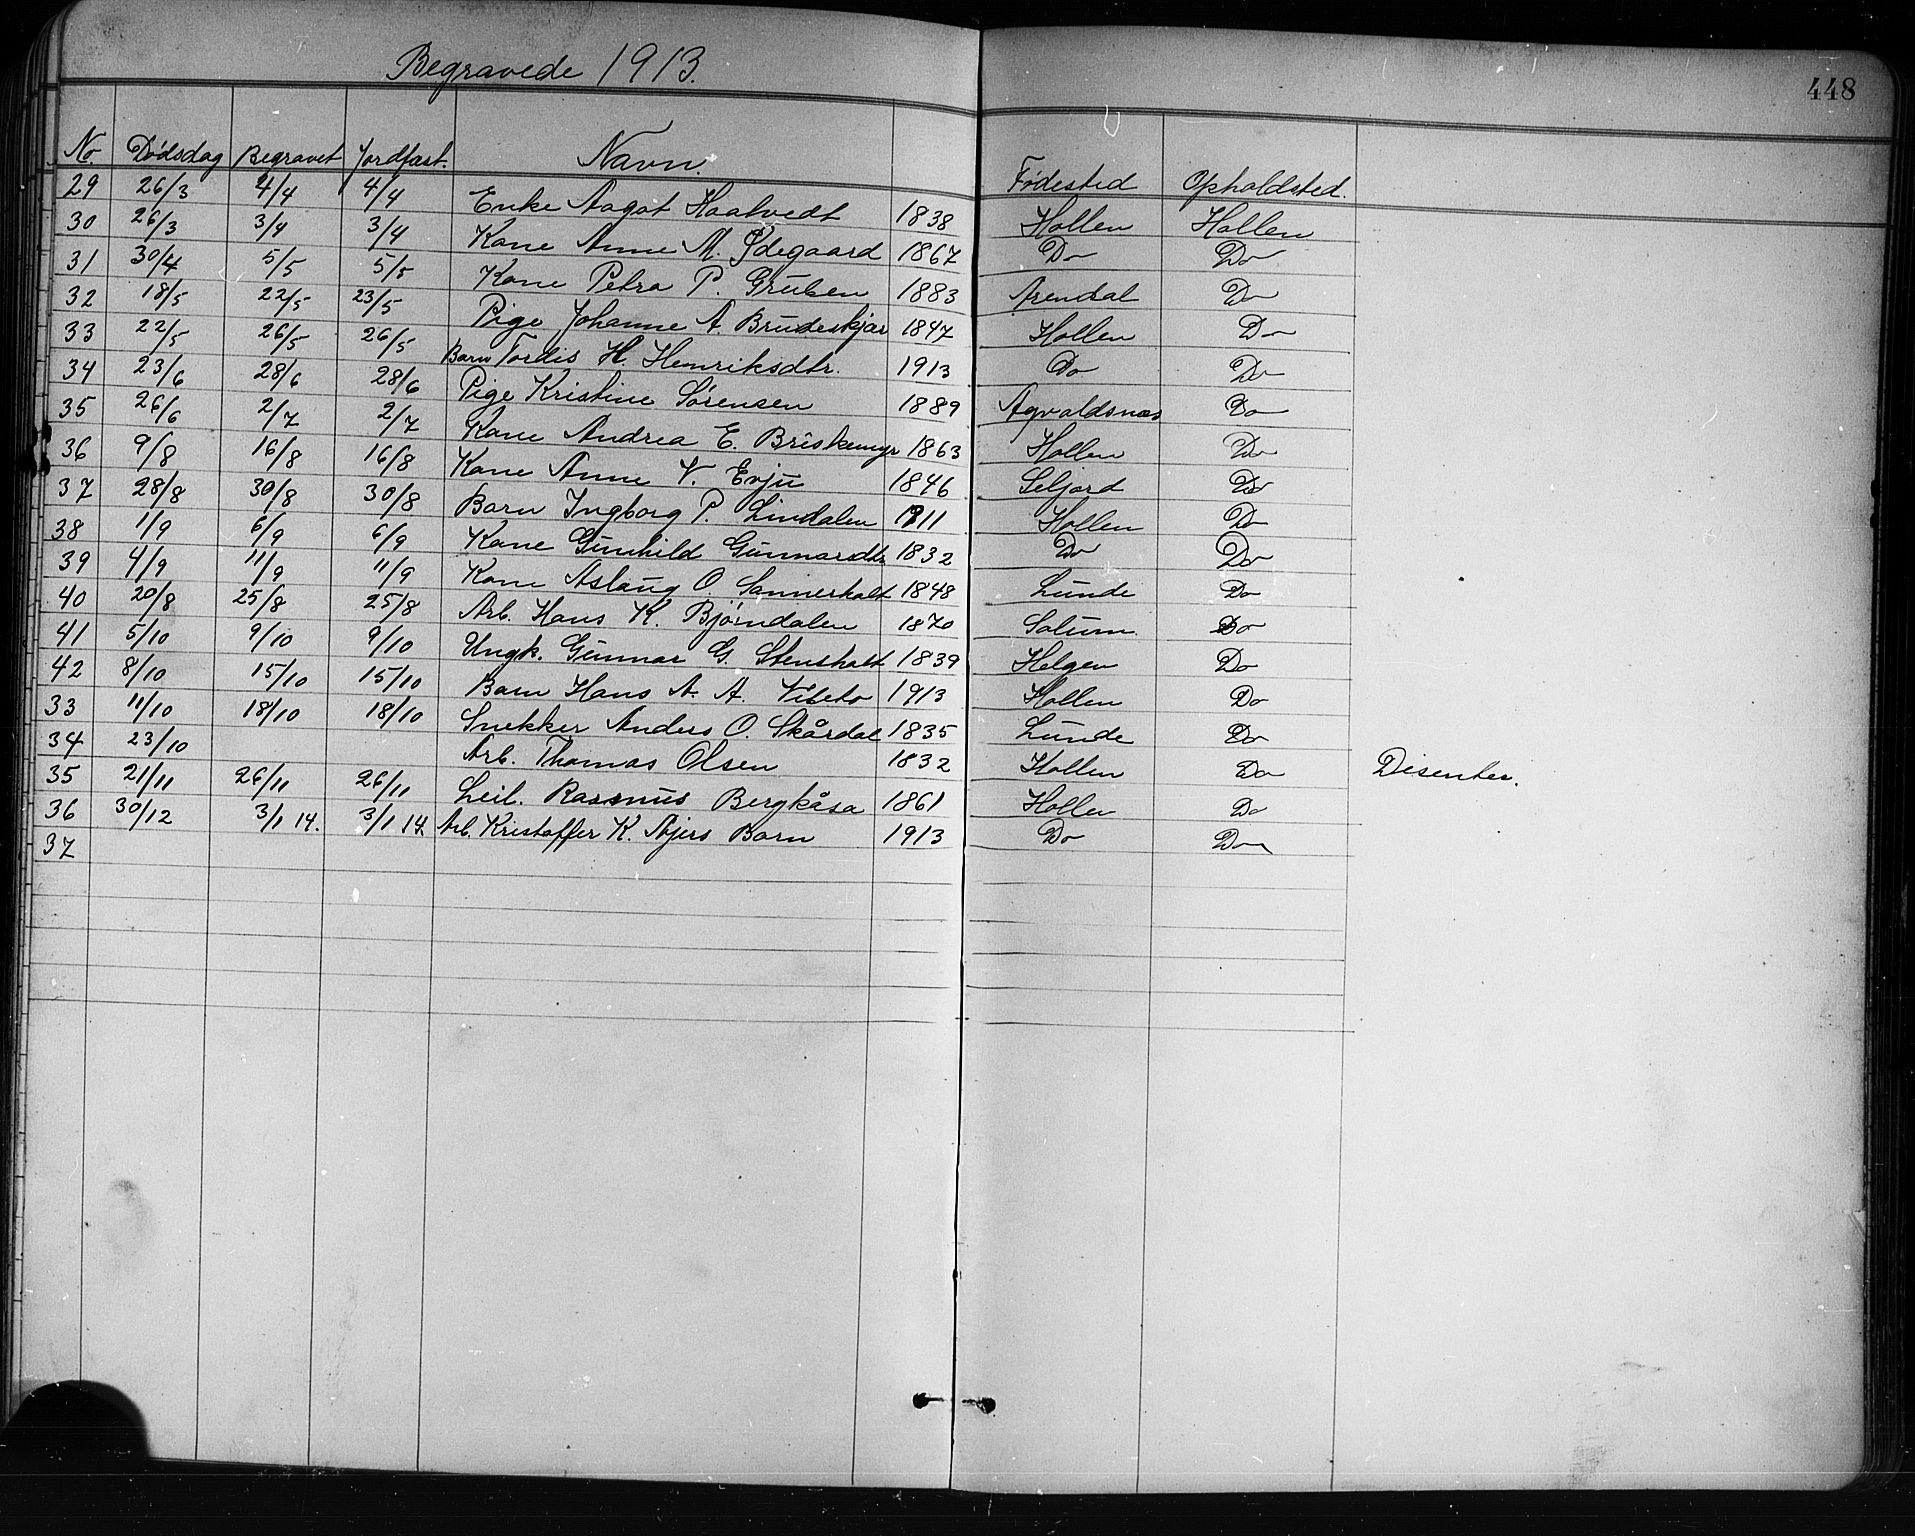 Begravede 1913.
448
No. Dødsdag Begravet Jordfæst. Navn. Fødested Opholdsted.
29 26/3 4/4 4/4 Enke Aagot Haatvedt 1838 Hollen Hollen
30 26/3 3/4 3/4 Kone Anne M. Ødegaard 1867 Do Do
31 30/4 5/5 5/5 Kone Petra P. Gruben 1883 Arendal Do
32 18/5 22/5 23/5 Pige Johanne A. Brudeskjær 1847 Hollen Do
33 22/5 26/5 26/5 Barn Tordis H. Henriksdtr. 1913 Do Do
34 23/6 28/6 28/6 Pige Kristine Sørensen 1889 Agvaldsnæs Do
35 26/6 2/7 2/7 Kone Andrea E. Briskemyr 1863 Hollen Do
36 9/8 16/8 16/8 Kone Anne V. Evju 1846 Seljord Do
37 28/8 30/8 30/8 Barn Ingborg P. Lindalen 1911 Hollen Do
38 1/9 6/9 6/9 Kone Gunhild Gunnarsdtr 1832 Do Do
39 4/9 11/9 11/9 Kone Aslaug O. Sannerholt 1848 Lunde Do
40 20/8 25/8 25/8 Arb. Hans K. Bjørndalen 1870 Solum Do
41 5/10 9/10 9/10 Ungk. Gunnar G. Stensholt 1839 Helgen Do
42 8/10 15/10 15/10 Barn Hans A. A. Vibeto 1913 Hollen Do
33 11/10 18/10 18/10 Snekker Anders O. Skårdal 1835 Lunde Do
34 23/10 Arb. Thomas Olsen 1832 Hollen Do Disenter.
35 21/11 26/11 26/11 Leil. Rasmus Bergkåsa 1861 Hollen Do
36 30/12 3/1 14. 3/1 14 Arb. Kristoffer K. Ajers Barn 1913 Do Do
37